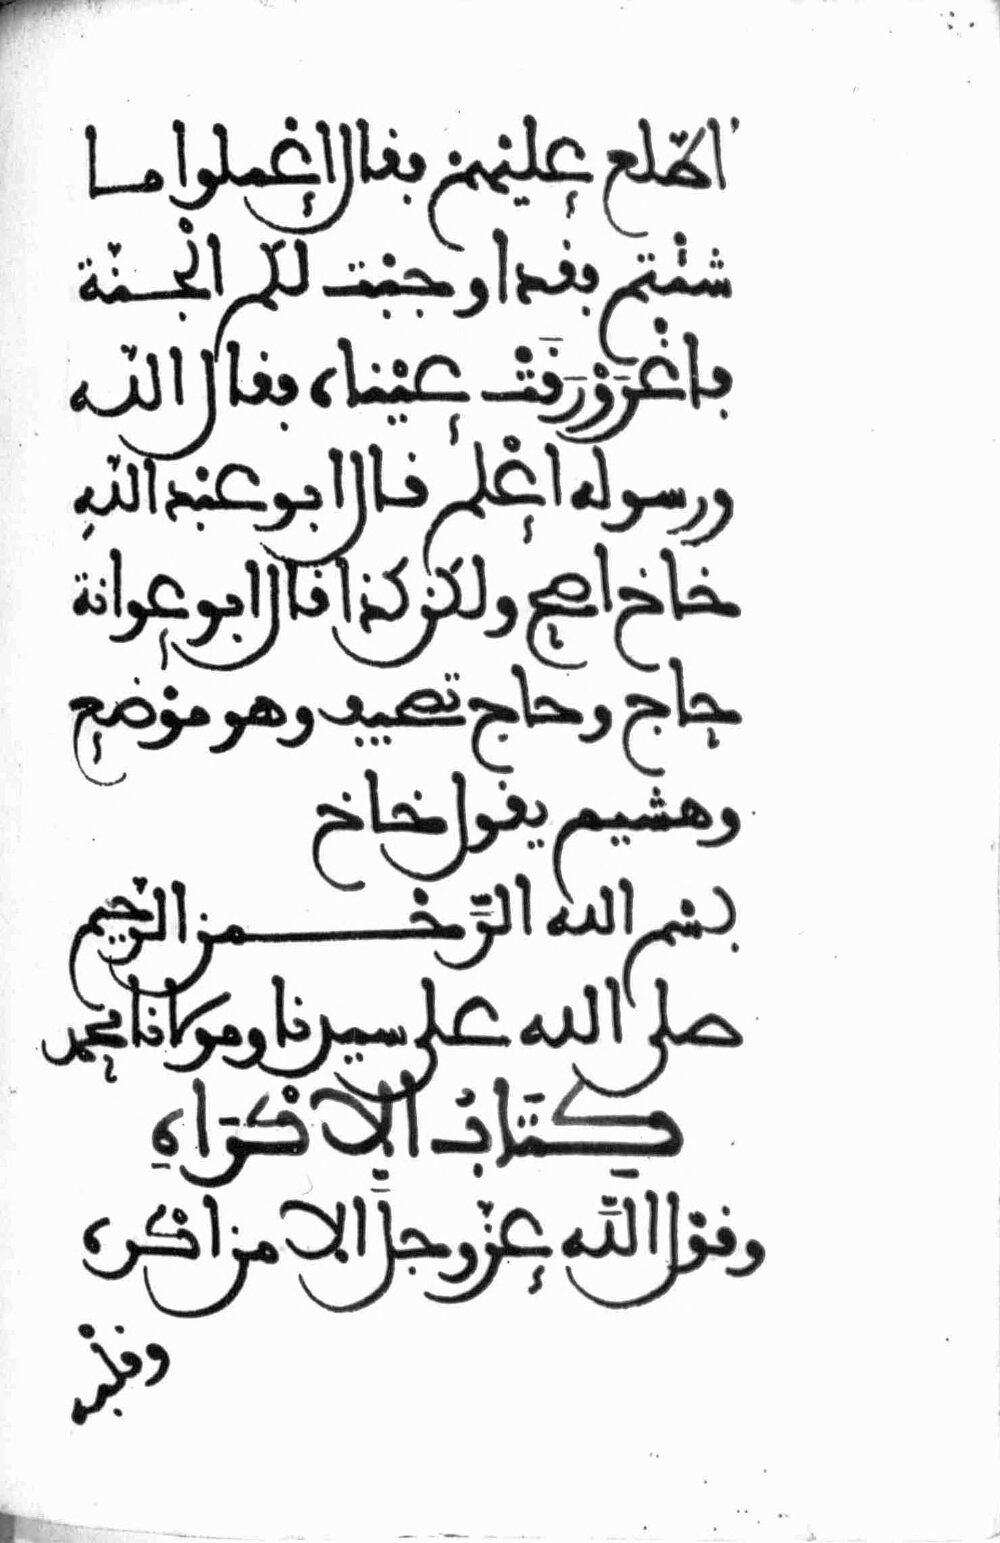 اطّلع عليهم فقال إعملوا ما
شئتم فقد اوجبت لكم الجنة
فاغْرَوْرَقَتْ عيناه فقال اللّه
ورسوله اعْلم قال ابو عبد اللّهِ
خاخ اصح ولكن كذا قال ابو عوانة
حاج وحاج تصحيف وهو موْضع
وهشيم يقول خاخ
بسْم الله الرَّحْمن الرّحيم
صلى الله على سيدنا ومولانا محمد
كِتَابُ الاكْرَاهِ
وقوْل اللَّه عزّ وجلَّ الا من اكْره
وقلْبه